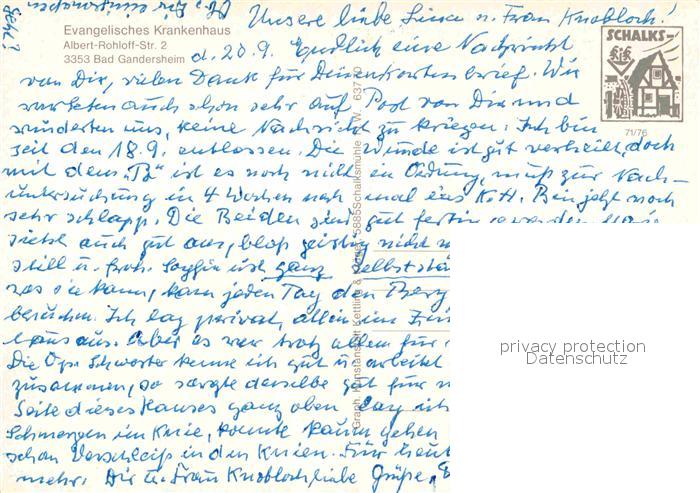 Unsere liebe Sina u. Frau Knobloch!
Evangelisches Krankenhaus
Albert-Rohloff-Str. 2
3353 Bad Gandersheim
d. 20.9. Endlich eine Nachricht
von Dir, vielen Dank für Deinen Kartenbrief. Wir
warteten auch schon sehr auf Post von Dir und
wunderten uns, keine Nachricht zu kriegen. Ich bin
seit dem 18.9. entlassen. Die Wunde ist gut verheilt, doch
mit dem ist es noch nicht in Ordnung, muß zur Nach-
untersuchung in 4 Wochen noch mal ins K.H. Bin jetzt noch
sehr schlapp. Die Beiden sind gut fertig geworden
sieht auch gut aus, bloß geistig nicht
still u. froh. ist ganz selbststä
was sie kann, kam jeden Tag den Berg
besuchen. Ich lag privat, allein im
aus. Aber es war trotz allem für
Die Op. Schwester kenne ich gut u. arbeitet
zusammen, so sorgte derselbe gut für
Seite dieses Hauses ganz oben lag ich
Schmerzen im Knie, konnte kaum gehen
schon Verschleiß in den Knien. Für heut
mehr. Dir u. Frau Knobloch liebe Grüße,
SCHALKS-
71/76
Graph. Kunstanstalt Kettling & Krüger, 5885 Schalksmühle i. W.
privacy protection
Datenschutz